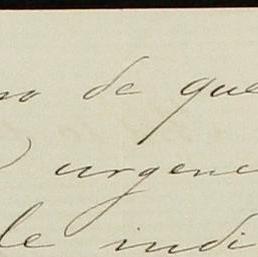 no de que
urgenc
le indi